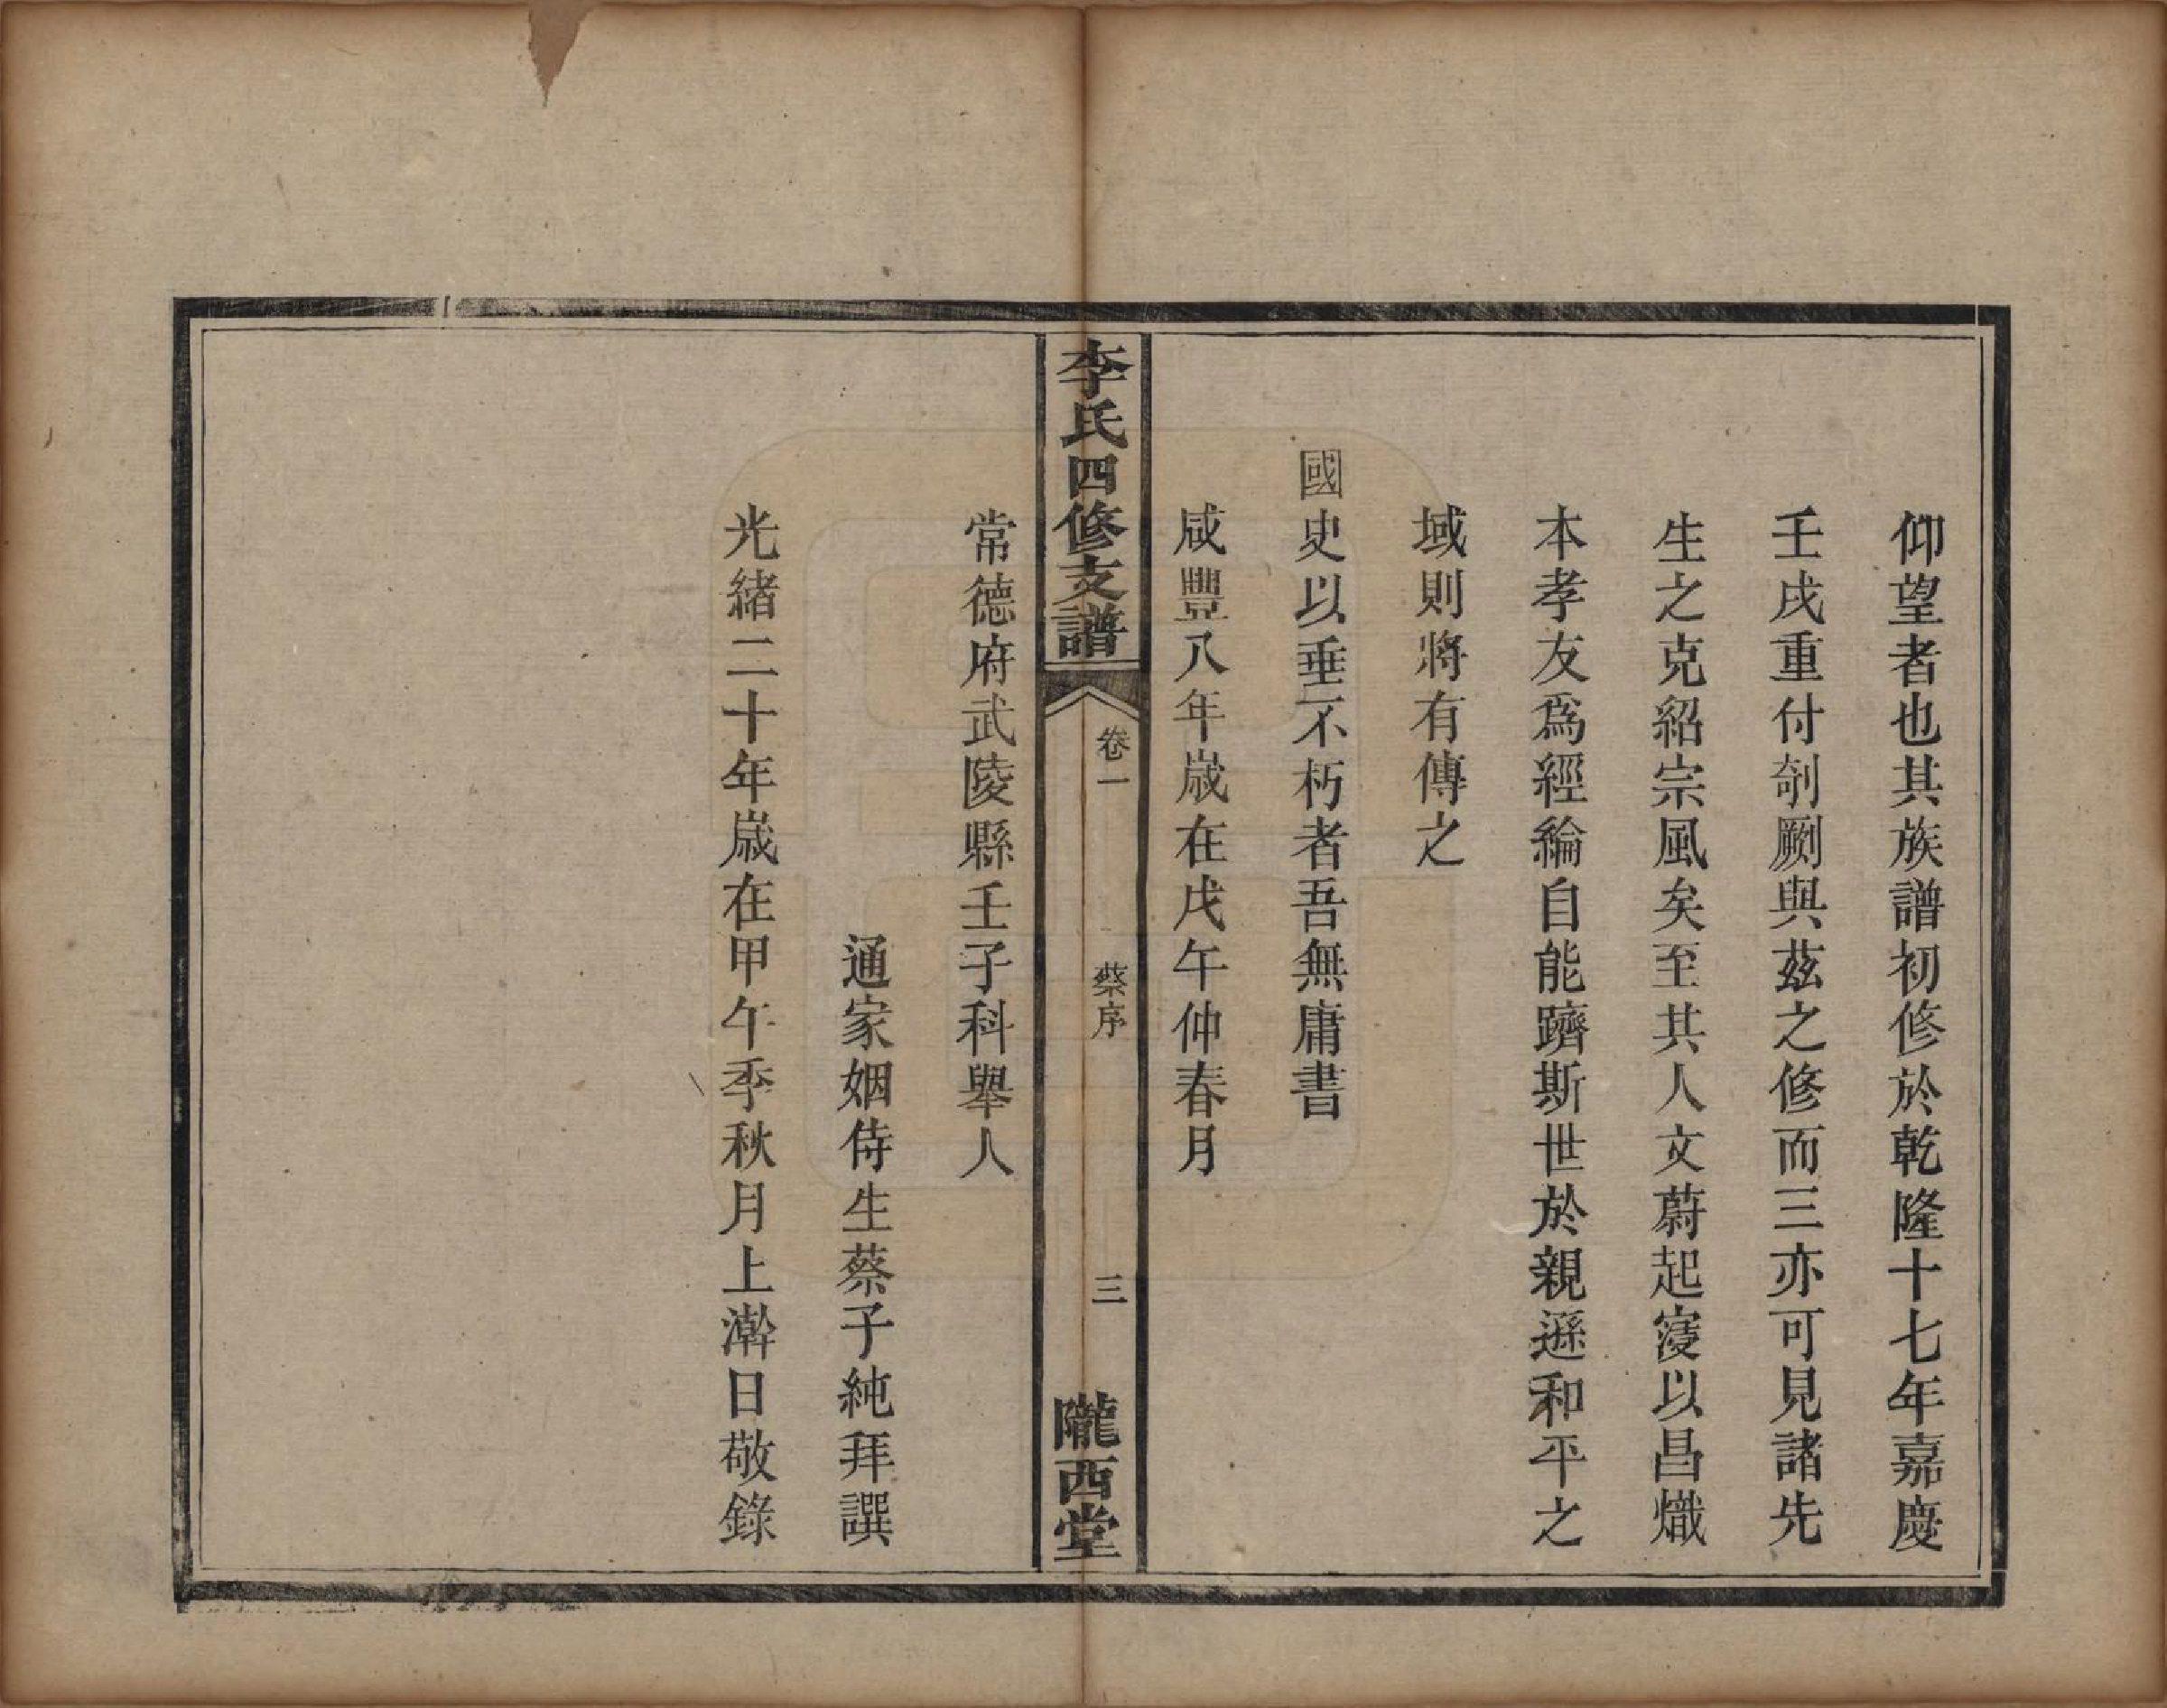 仰望者也其族譜初修於乾隆十七年嘉慶
壬戌重付剞劂與茲之修而三亦可見諸先
生之克紹宗風矣至其人文蔚起寖以昌熾
本孝友爲經綸自能躋斯世於親遜和平之
域則將有傳之
國史以垂不朽者吾無庸書
咸豐八年嵗在戊午仲春月
李氏四修支譜
卷一
蔡序
三
隴西堂
常德府武陵縣壬子科舉人
通家姻侍生蔡子純拜譔
光緒二十年嵗在甲午季秋月上澣日敬錄